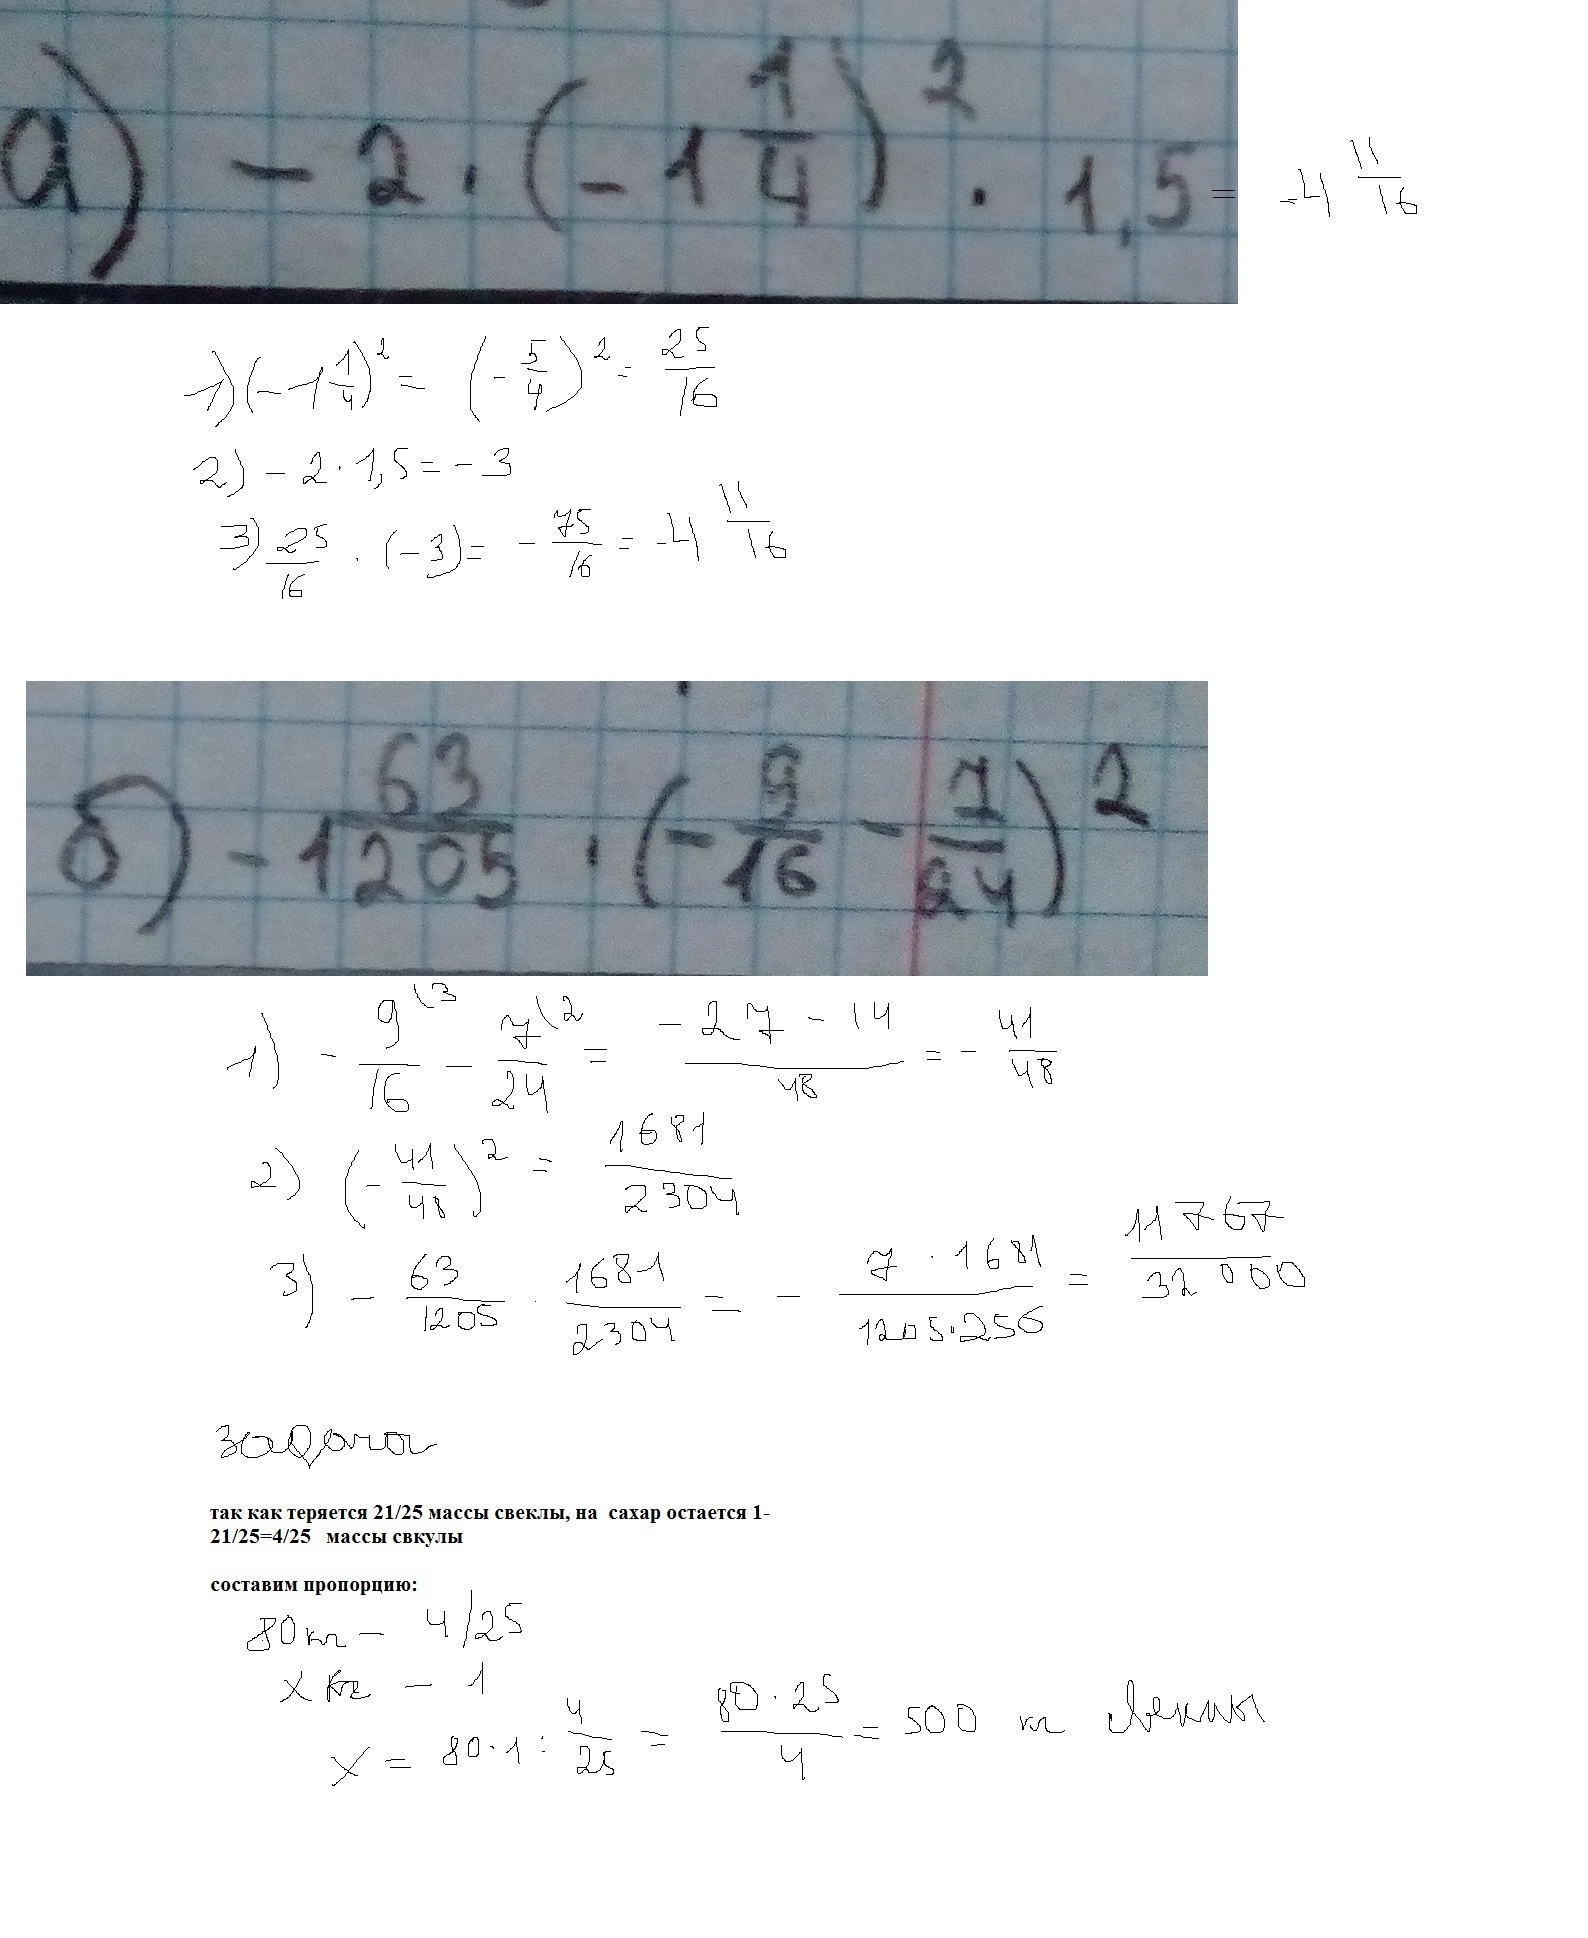 а) -2 · (-1 1/4)² · 1,5 = -4 11/16
1) (-1 1/4)² = (-5/4)² = 25/16
2) -2 · 1,5 = -3
3) 25/16 · (-3) = -75/16 = -4 11/16
б) -1 63/1205 · (-9/16 - 7/24)²
1) -9\3/16 - 7\2/24 = -27-14/48 = -41/48
2) (-41/48)² = 1681/2304
3) -63/1205 · 1681/2304 = -7 · 1681/1205·256 = 11767/32000
задача
так как теряется 21/25 массы свеклы, на сахар остается 1-
21/25=4/25 массы свкулы
составим пропорцию:
80 кг - 4/25
x кг - 1
x = 80·1 : 4/25 = 80·25/4 = 500 кг свеклы